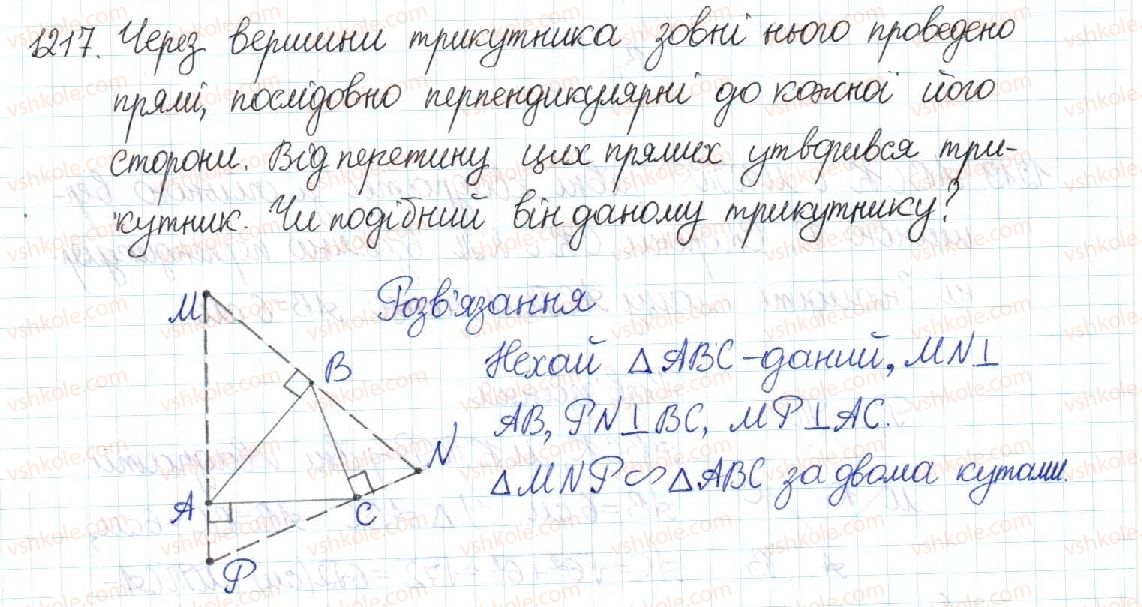 1217. Через вершини трикутника зовні нього проведено
прямі, послідовно перпендикулярні до кожної його
сторони. Від перетину цих прямих утворився три-
кутник. Чи подібний він даному трикутнику?
Розв'язання
Нехай △ABC - даний, MN⊥
AB, PN⊥BC, MP⊥AC.
△MNP∽△ABC за двома кутами.
M
B
N
A
C
P